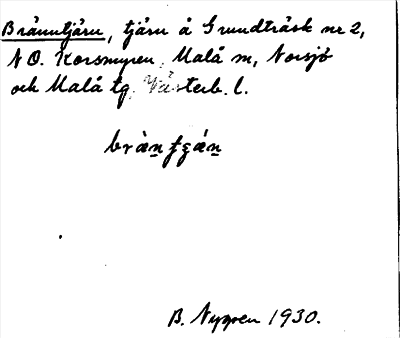 Bränntjärn, tjärn å Grundträsk nr 2,
N O. Korsmyren, Malå sn, Norsjö
och Malå tg, Västerb. l.
B. Nygren 1930.